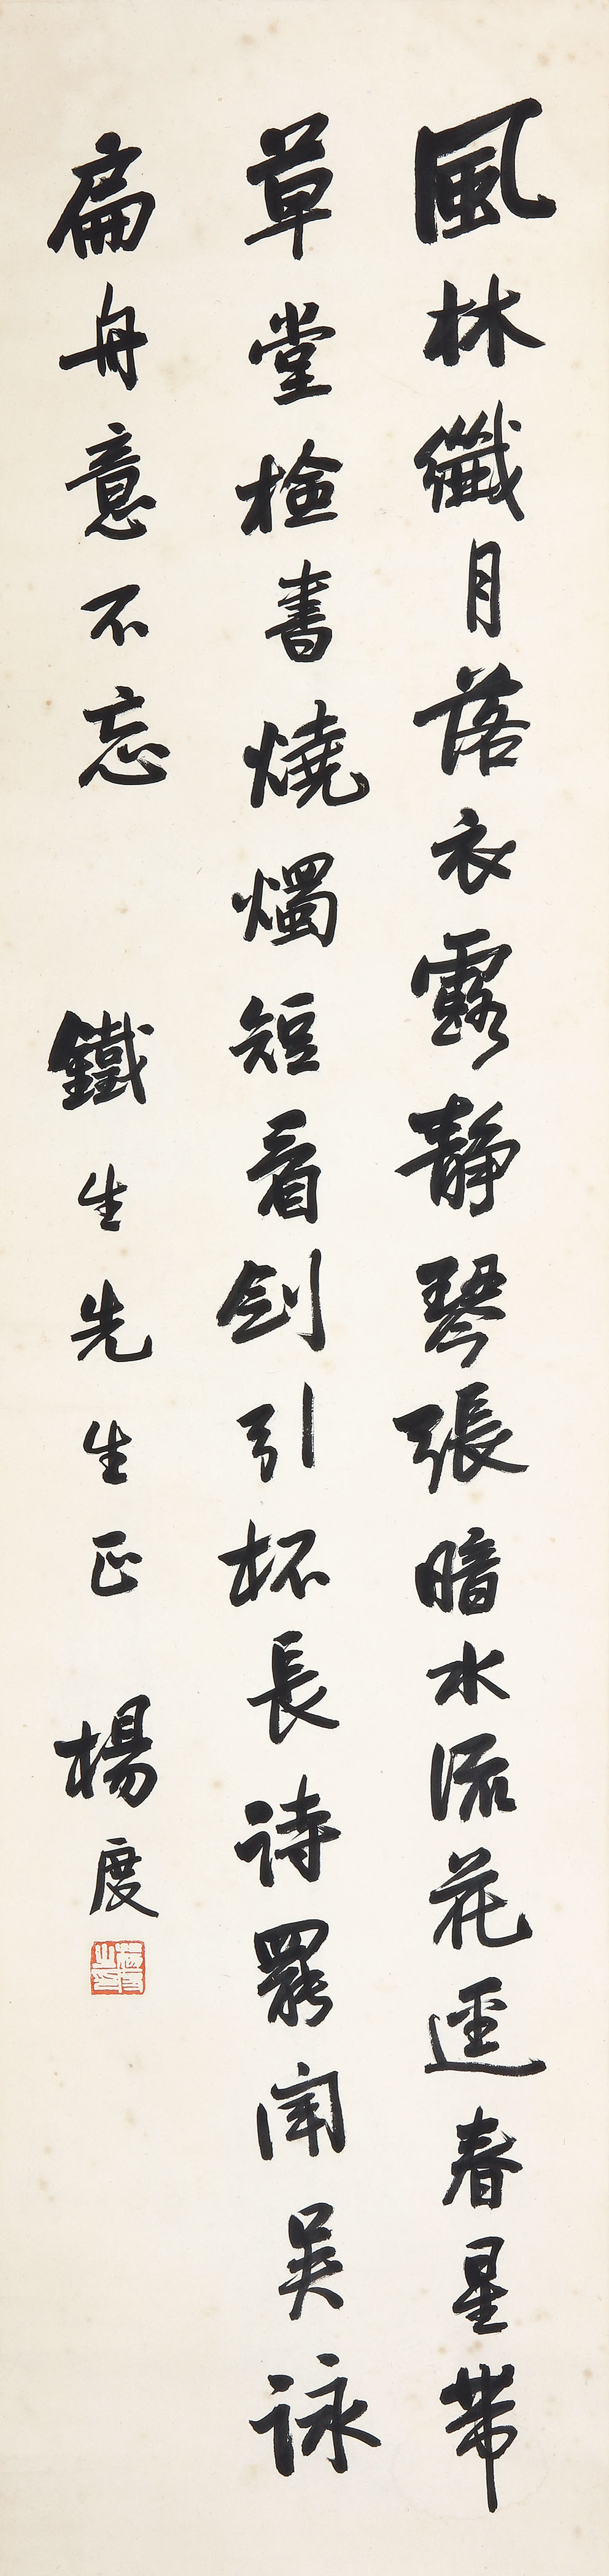 風林纖月落衣露靜琴張暗水流花逕春星帶
草堂檢書燒燭短看劍引杯長詩罷聞吳詠
扁舟意不忘 鐵生先生正 楊度